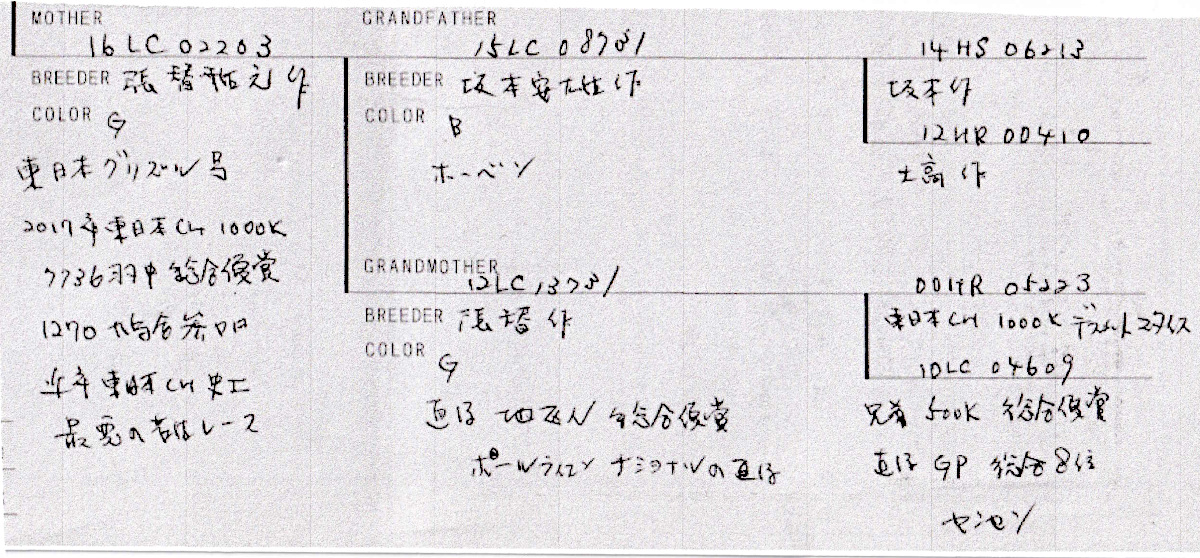 MOTHER
16LC 02203
BREEDER 張替 作
COLOR G
東日本グリズル号
2017年東日本CH 1000K
7736羽中 総合優賞
1270 鳩舎参加
近年東日本CH史上
最悪の苦性レース
GRANDFATHER
15LC 08781
BREEDER 坂本安雄作
COLOR B
ホーベン
GRANDMOTHER
12LC 13731
BREEDER 張替 作
COLOR G
直仔 地区N 総合優賞
ポール ナショナルの直仔
14HS 06213
坂本作
12HR 00410
土高作
00HR 05223
東日本CH 1000K
10LC 04609
兄弟 500K 総合優賞
直仔 GP 総合8位
ヤンセン